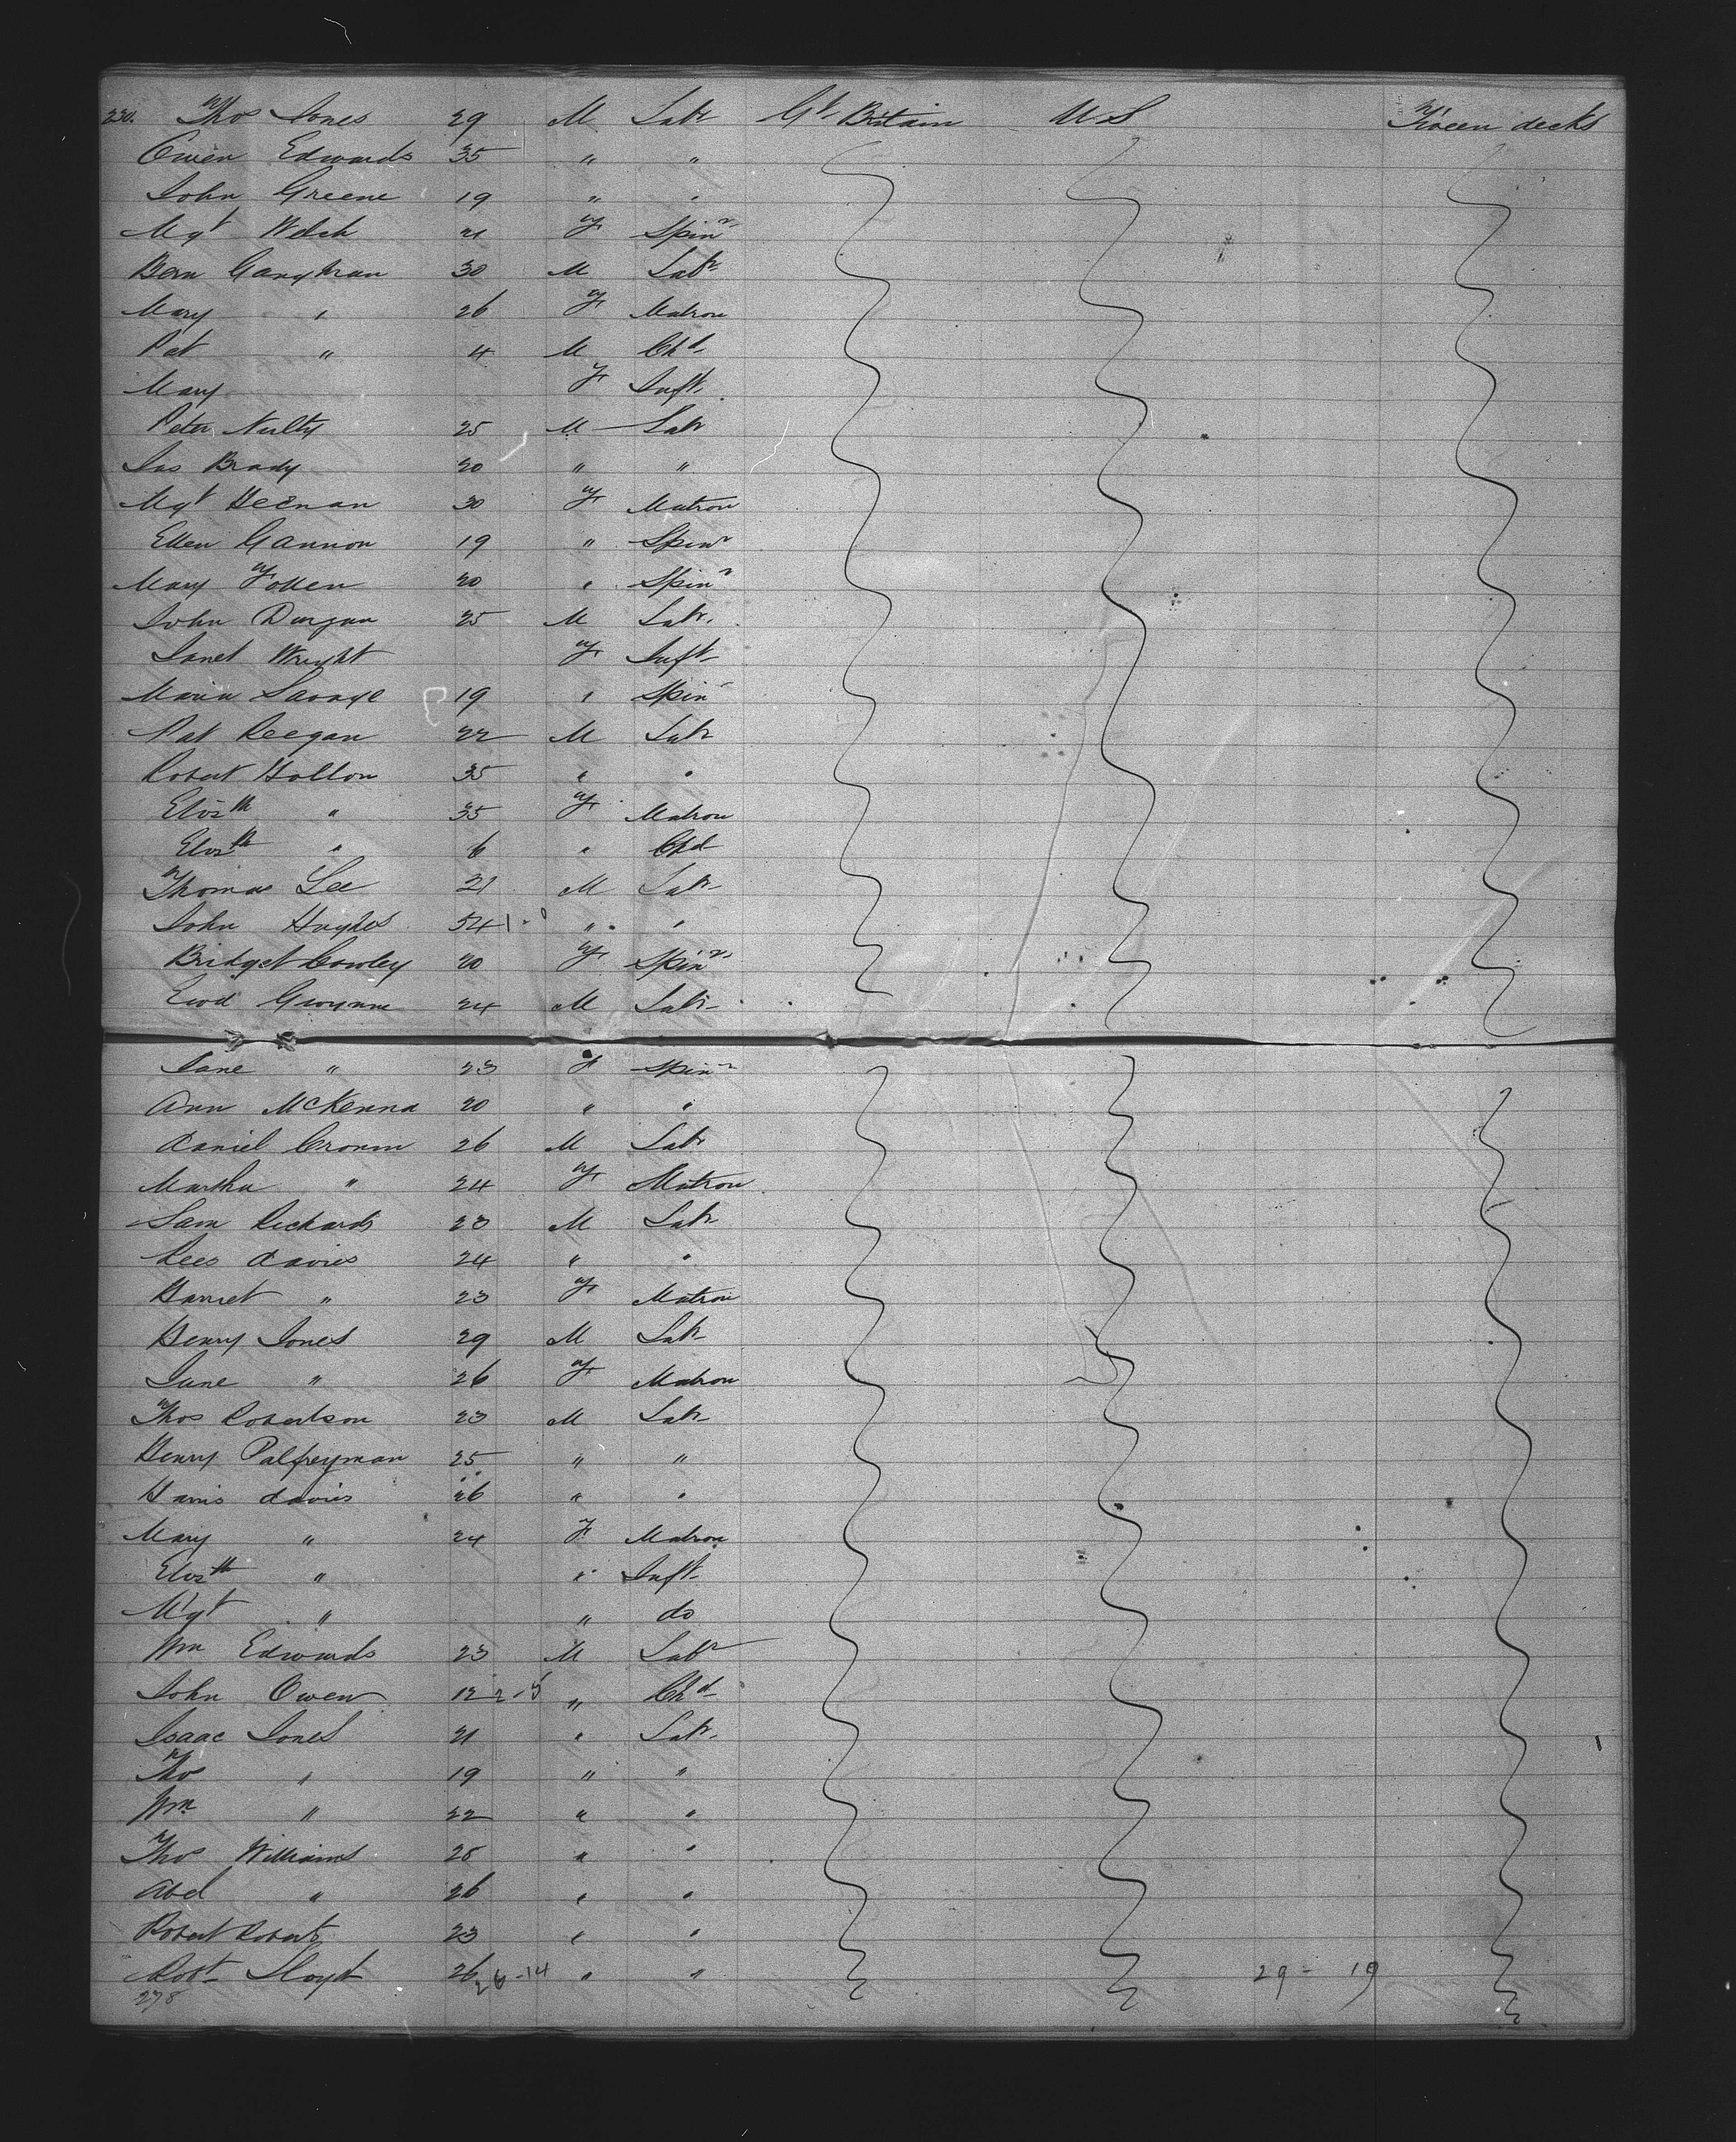 230. Thos Jones 29 M Labr Gt Britain U S 'tween decks
Owen Edwards 35 " "
John Greene 19 " "
Mgt Welsh 21 F Spinr
Bern Gaughran 30 M Labr
Mary " 26 F Matron
Pat " 4 M Chd
Mary F Inft
Peter Nulty 25 M Labr
Jas Brady 20 " "
Mgt Heenan 30 F Matron
Ellen Gannon 19 " Spinr
Mary 20 " Spinr
John Durgan 25 M Labr
Janet Wright F Inft
Maria Savage 19 " Spinr
Pat Reegan 22 M Labr
Robert Hollon 35 " "
Elizth " 35 F Matron
Elizth " 6 " Chd
Thomas Lee 21 M Labr
John Hughes 54 1 - 0 " "
Bridget Cowley 20 F Spinr
Ewd Gwynne 24 M Labr
Jane " 23 F Spinr
Ann McKenna 20 " "
Daniel Cronin 26 M Labr
Martha " 24 F Matron
Sam Richards 23 M Labr
Rees Davies 24 " "
Harriet " 23 F Matron
Henry Jones 29 M Labr
Jane " 26 F Matron
Thos Robertson 23 M Labr
Henry Palfreyman 25 " "
Harris Davies 26 " "
Mary " 24 F Matron
Elizth " " Inft
Mgt " " do
Wm Edwards 23 M Labr
John Owen 12 2-5 " Chd
Isaac Jones 21 " Labr
Thos " 19 " "
Wm " 22 " "
Thos Williams 28 " "
Abel " 26 " "
Robert Roberts 23 " "
Robt Lloyd 26 26-14 " " 29 - 19
278